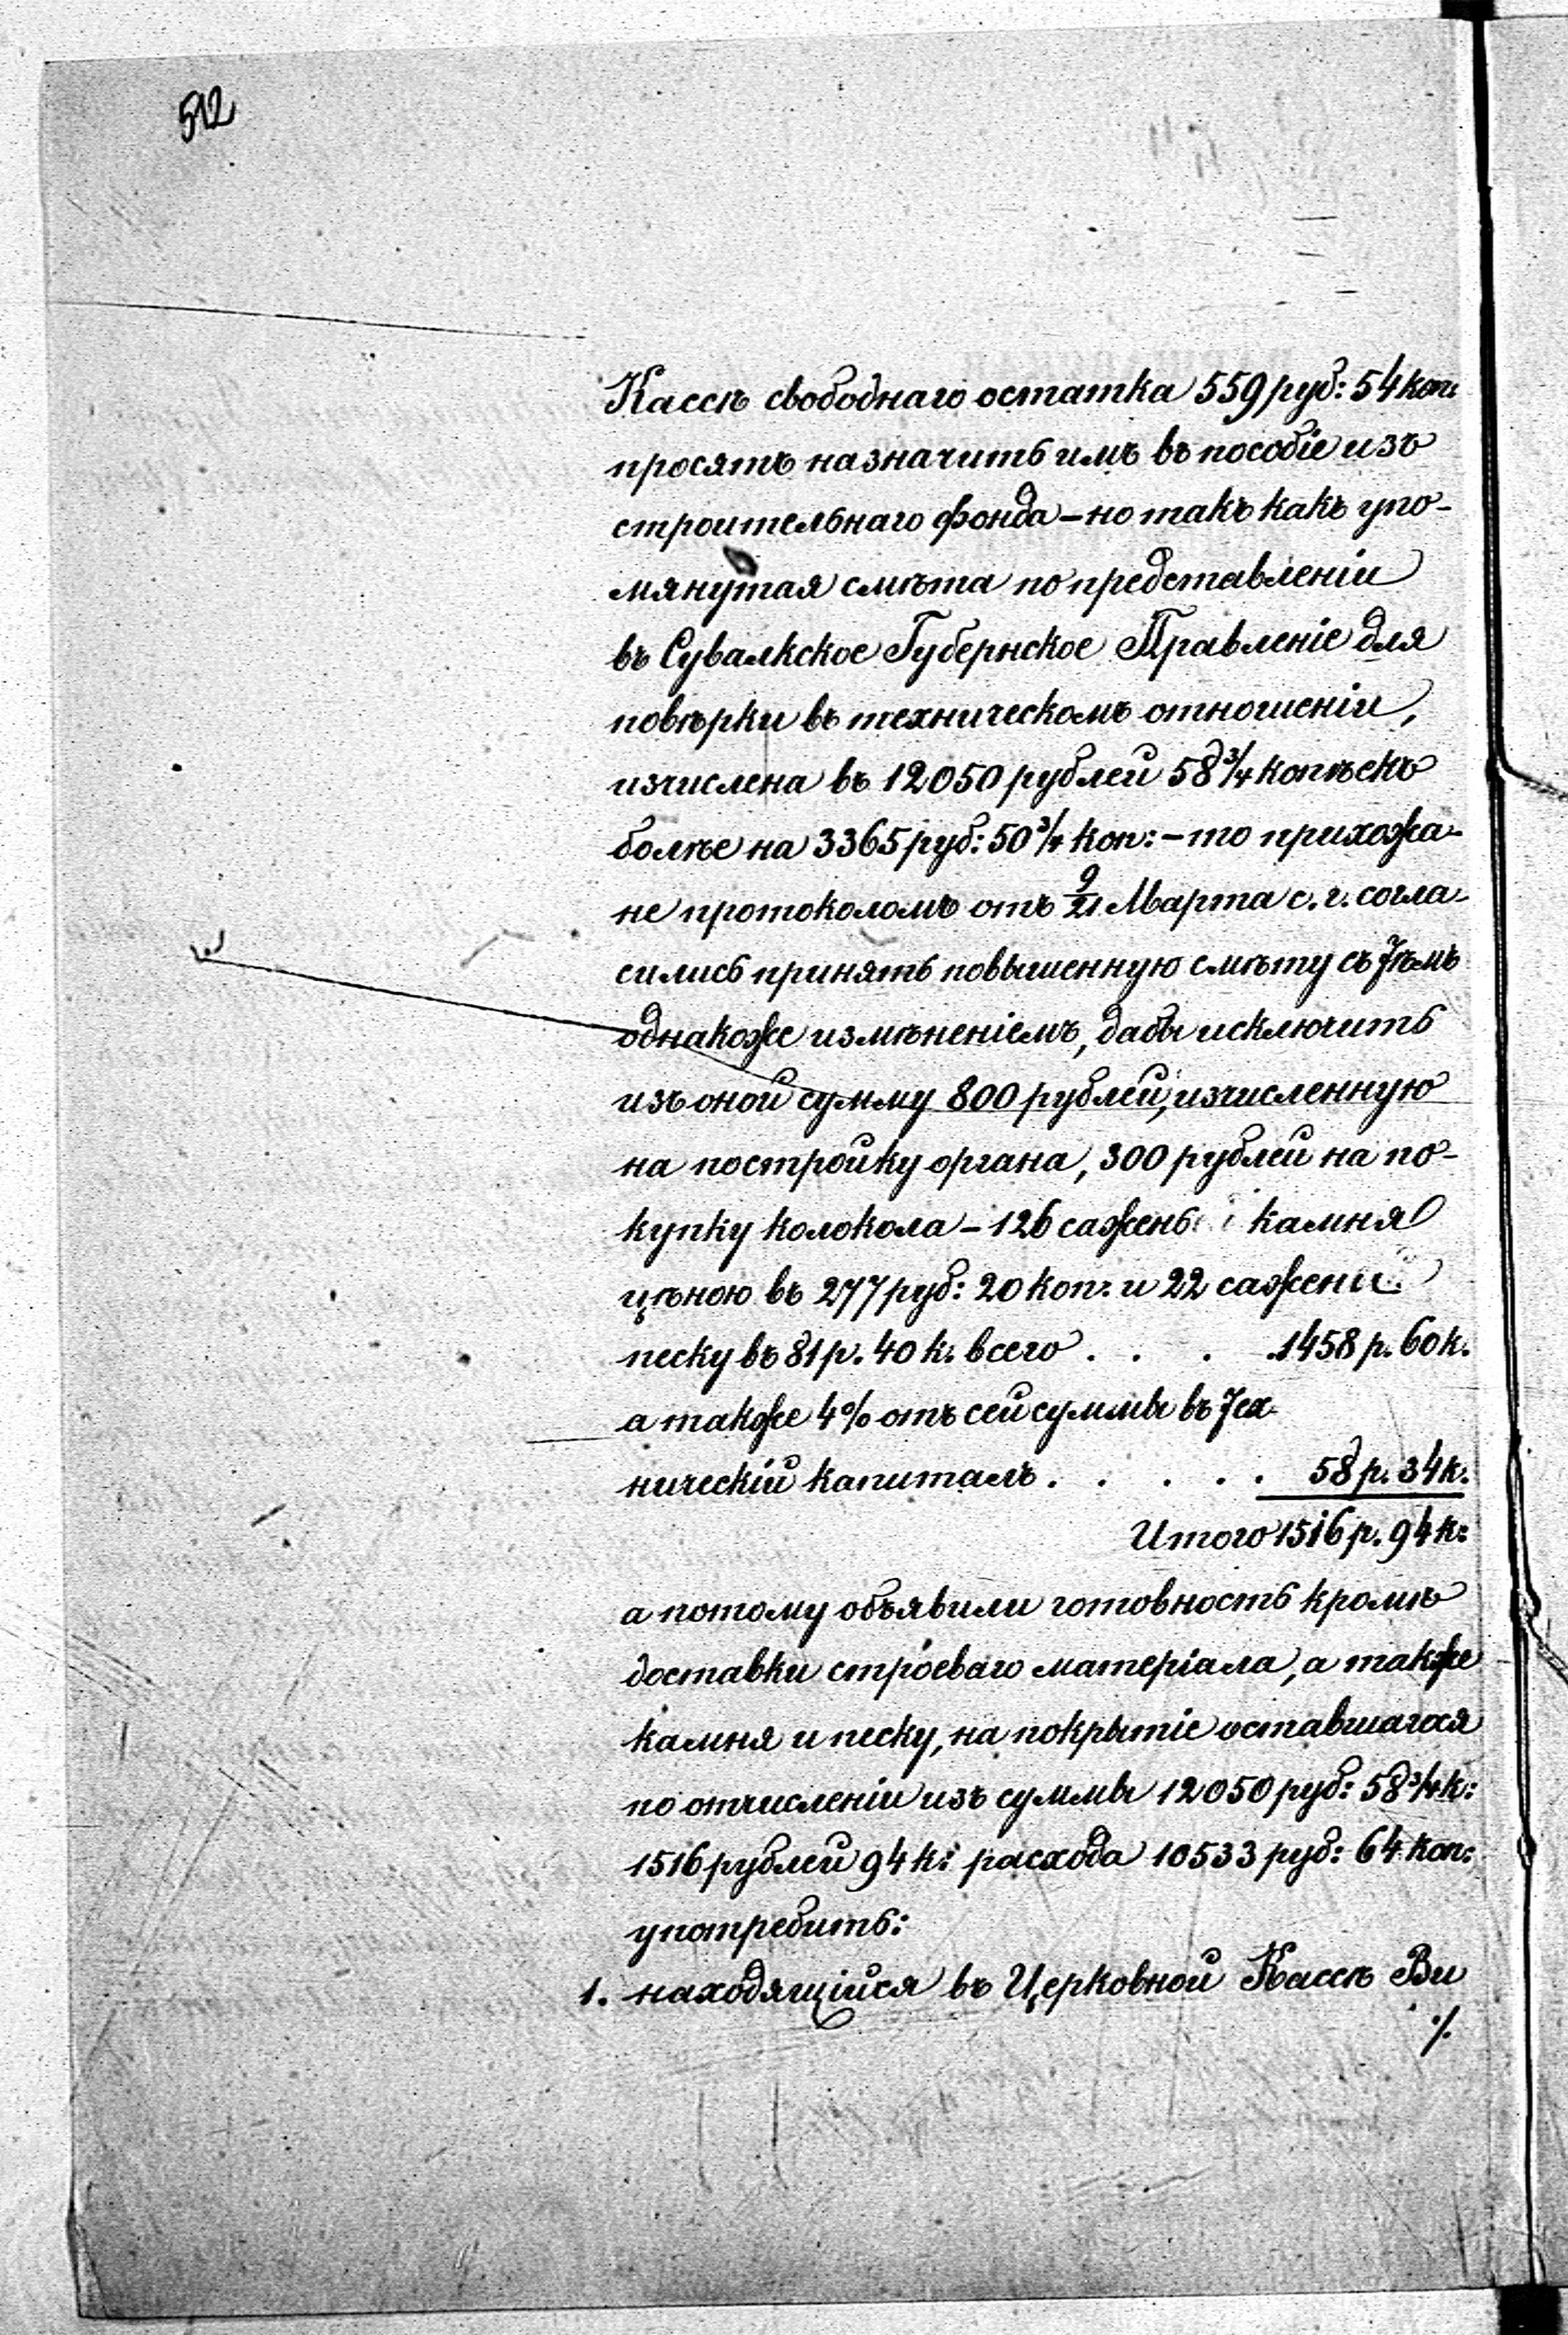 512
Кассѣ свободнаго остатка 559 руб: 54 коп:
просятъ назначить имъ въ пособіе изъ
строительнаго фонда – но такъ какъ упо-
мянутая смѣта по представленіи
въ Сувалкское Губернское Правленіе для
повѣрки въ техническомъ отношеніи,
изчислена въ 12050 рублей 58 3/4 копѣекъ
болѣе на 3365 руб: 50 3/4 коп: – то прихожа-
не протоколомъ отъ 9/21 Марта с. г. согла-
сились принять повышенную смѣту съ тѣмъ
однакоже измѣненіемъ, дабы исключить
изъ оной сумму 800 рублей, изчисленную
на постройку органа, 300 рублей на по-
купку колокола – 126 сажень камня
цѣною въ 277 руб: 20 коп: и 22 сажени
песку въ 81 р. 40 к. всего . . . . 1458 р. 60 к.
а также 4% отъ сей суммы въ тех-
ническій капиталъ . . . . . 58 р. 34 к.
Итого 1516 р. 94 к:
а потому объявили готовность кромѣ
доставки строеваго матеріала, а также
камня и песку, на покрытіе оставшагося
по отчисленіи изъ суммы 12050 руб: 58 3/4 к:
1516 рублей 94 к: расхода 10533 руб: 64 коп:
употребить:
1. находящійся въ Церковной Кассѣ Ви
./.